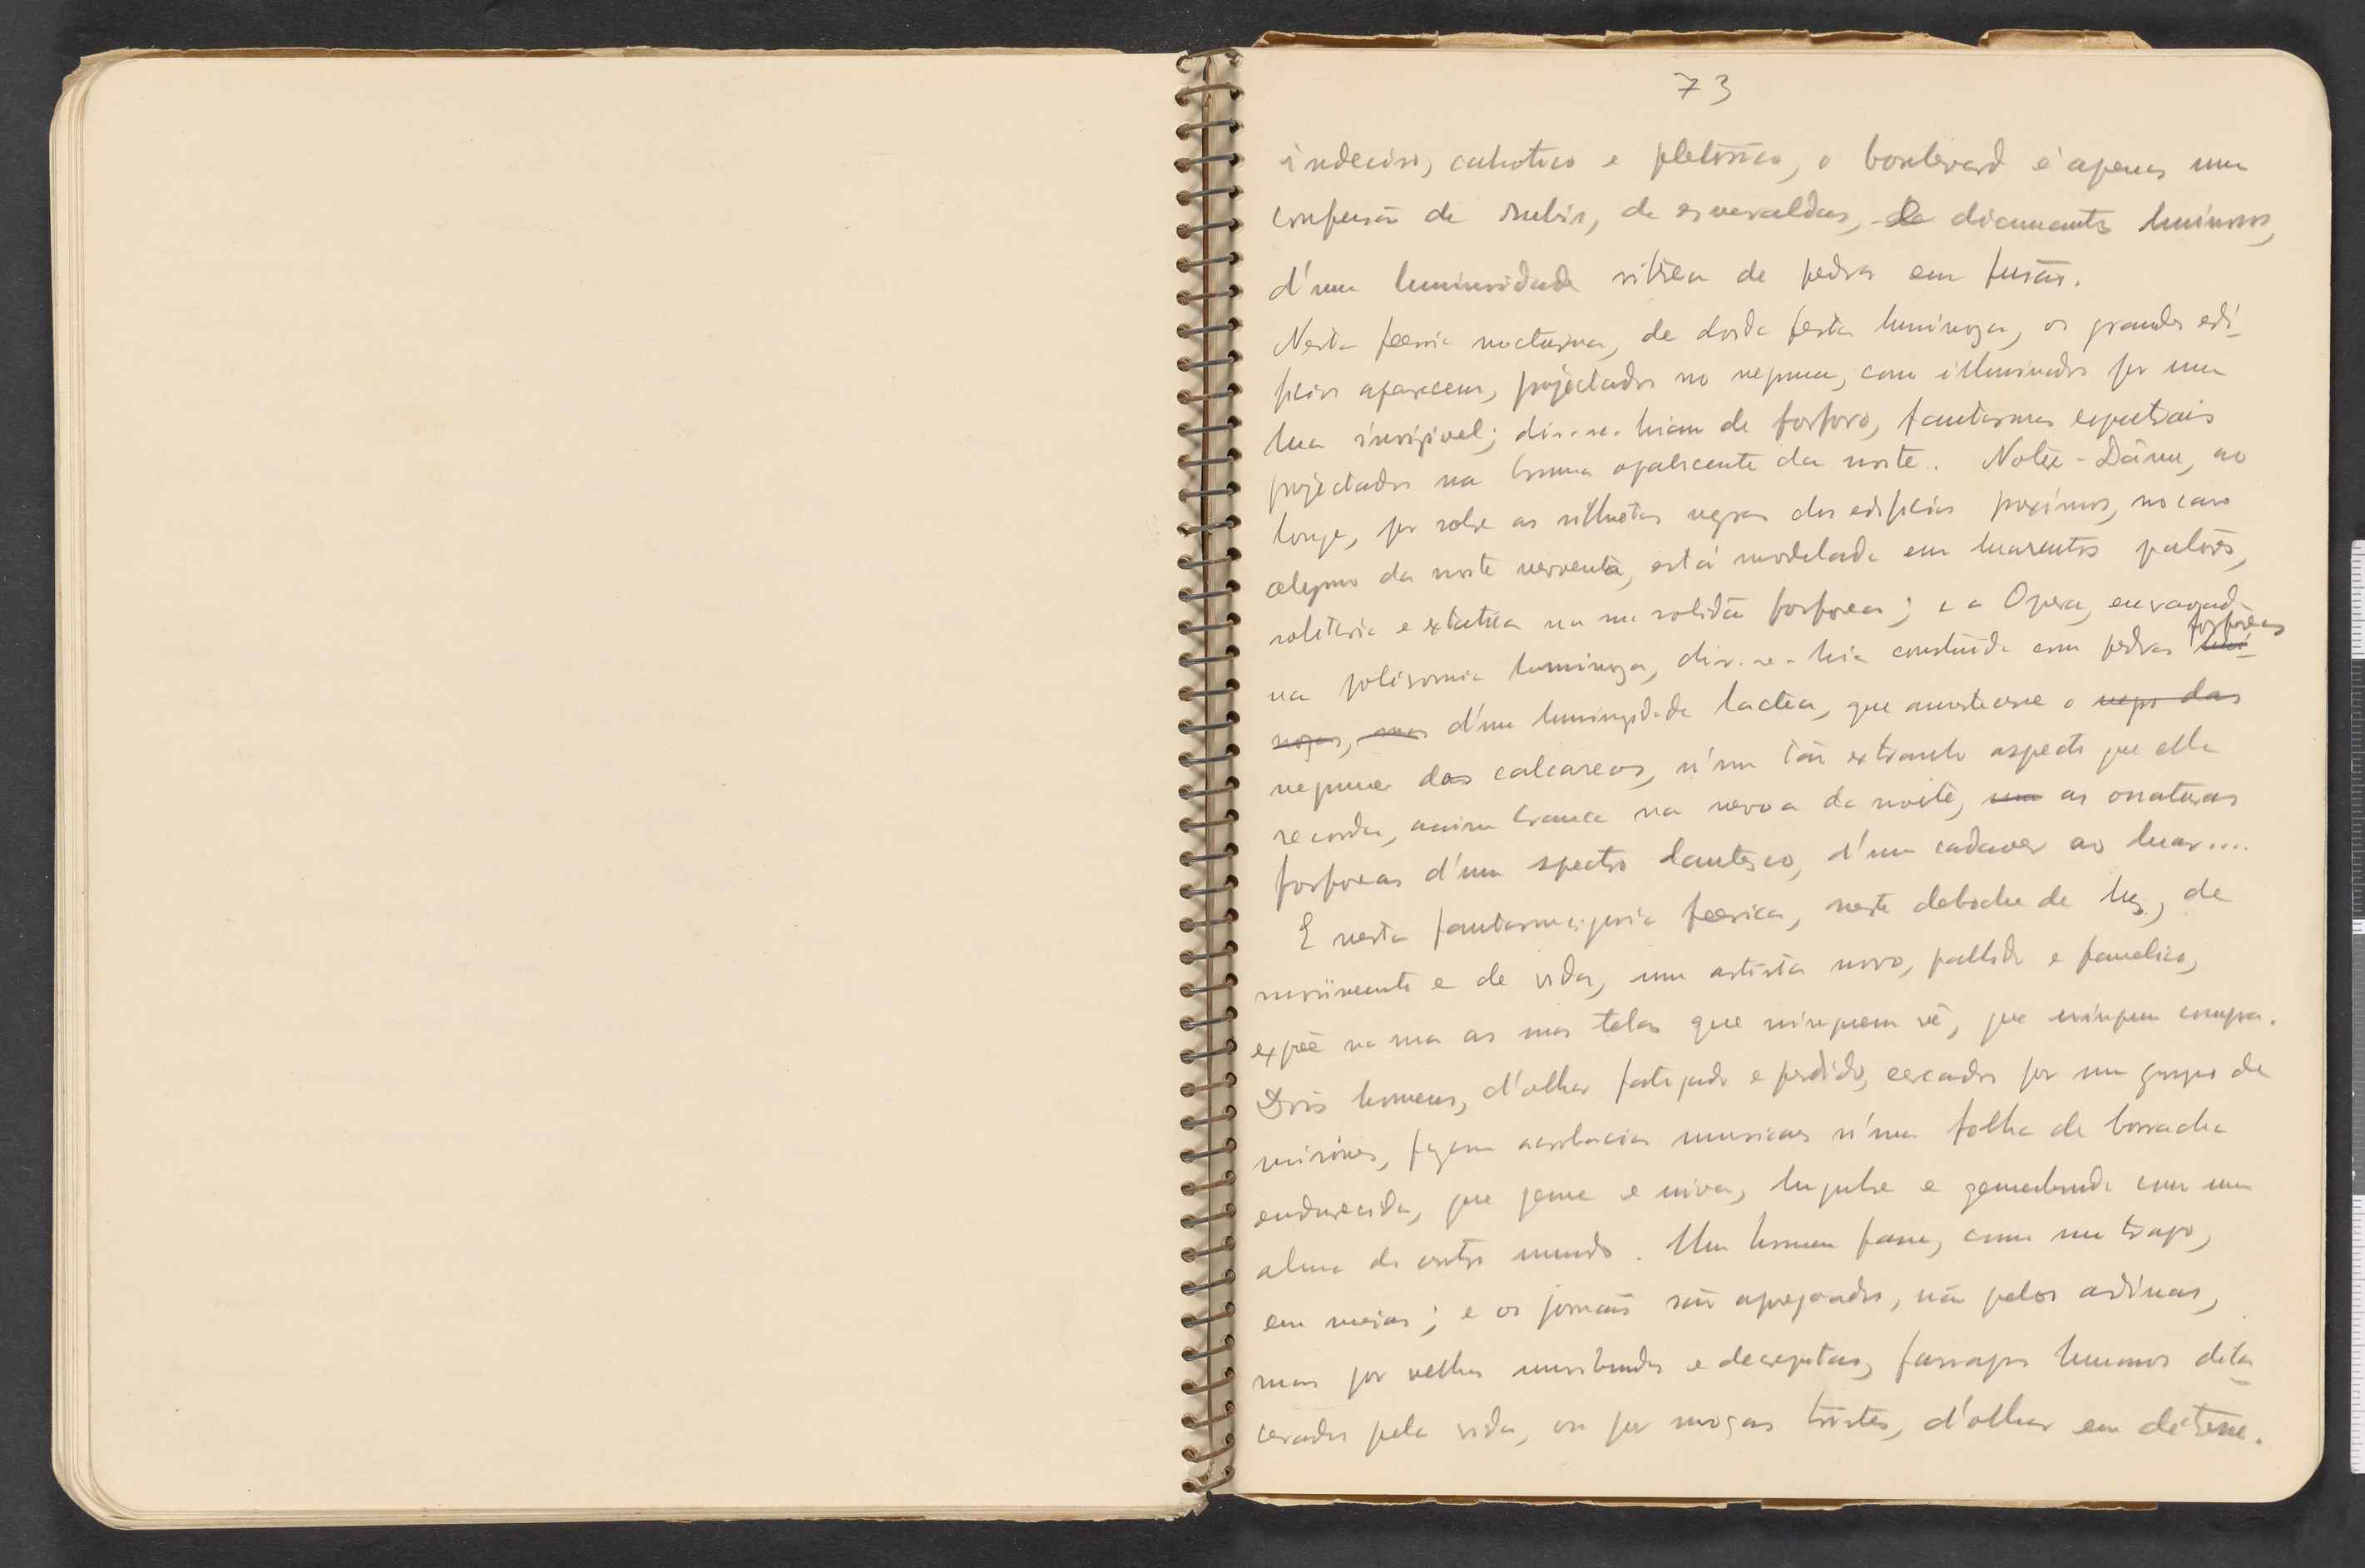 73
indeciso, cahotico e pletorico, o boulevard é apenas uma
confusão de rubis, de esmeraldas, de diamantes luminosos,
d'uma luminosidade vitrea de pedras em fusão.
Nesta feeria nocturna, de doida festa luminoza, os grandes edi-
ficios aparecem, projectados no negrume, como illuminados por uma
lua invizivel; dir-se-hiam de fosforo, fantasmas espectrais
projectados na bruma opalescente da noite. Notre-Dâme, ao
longe, por sobre as silhuetas negras dos edificios proximos, no caso
algino da noite nevoenta, está modelada em luarentos palôres,
solitaria e extatica na sua solidão fosforea; e a Opera,
na polisromia luminoza, dir-se-hia construida com pedras fosforeas lumi-
nozas, mas d'uma luminozidade lactea, que amortecesse o negro das
negrume dos calcareos, n'um tão extranho aspecto que ella
recorda, assim branca na nevoa da noite, uma as ossaturas
fosforeas d'um spectro dantesco, d'um cadaver ao luar....
E nesta fantasmagoria feerica, neste deboche de luz, de
movimento e de vida, um artista novo, pallido e famelico,
expõe na rua as suas telas que ninguem vê, que ninguem compra.
Dois homens, d'olhar fatigado e perdido, cercados por um grupo de
mirónes, fazem acrobacias musicaes n'uma folha de borracha
endurecida, que geme e uiva, lugubre e gemebunda como uma
alma do outro mundo. Um homem passa, como um trapo,
em meias; e os jornais são apregoados, não pelos ardinas,
mas por velhas moribundas e decrepitas, farrapos humanos dila-
cerados pela vida, ou por moças tristes, d'olhar em